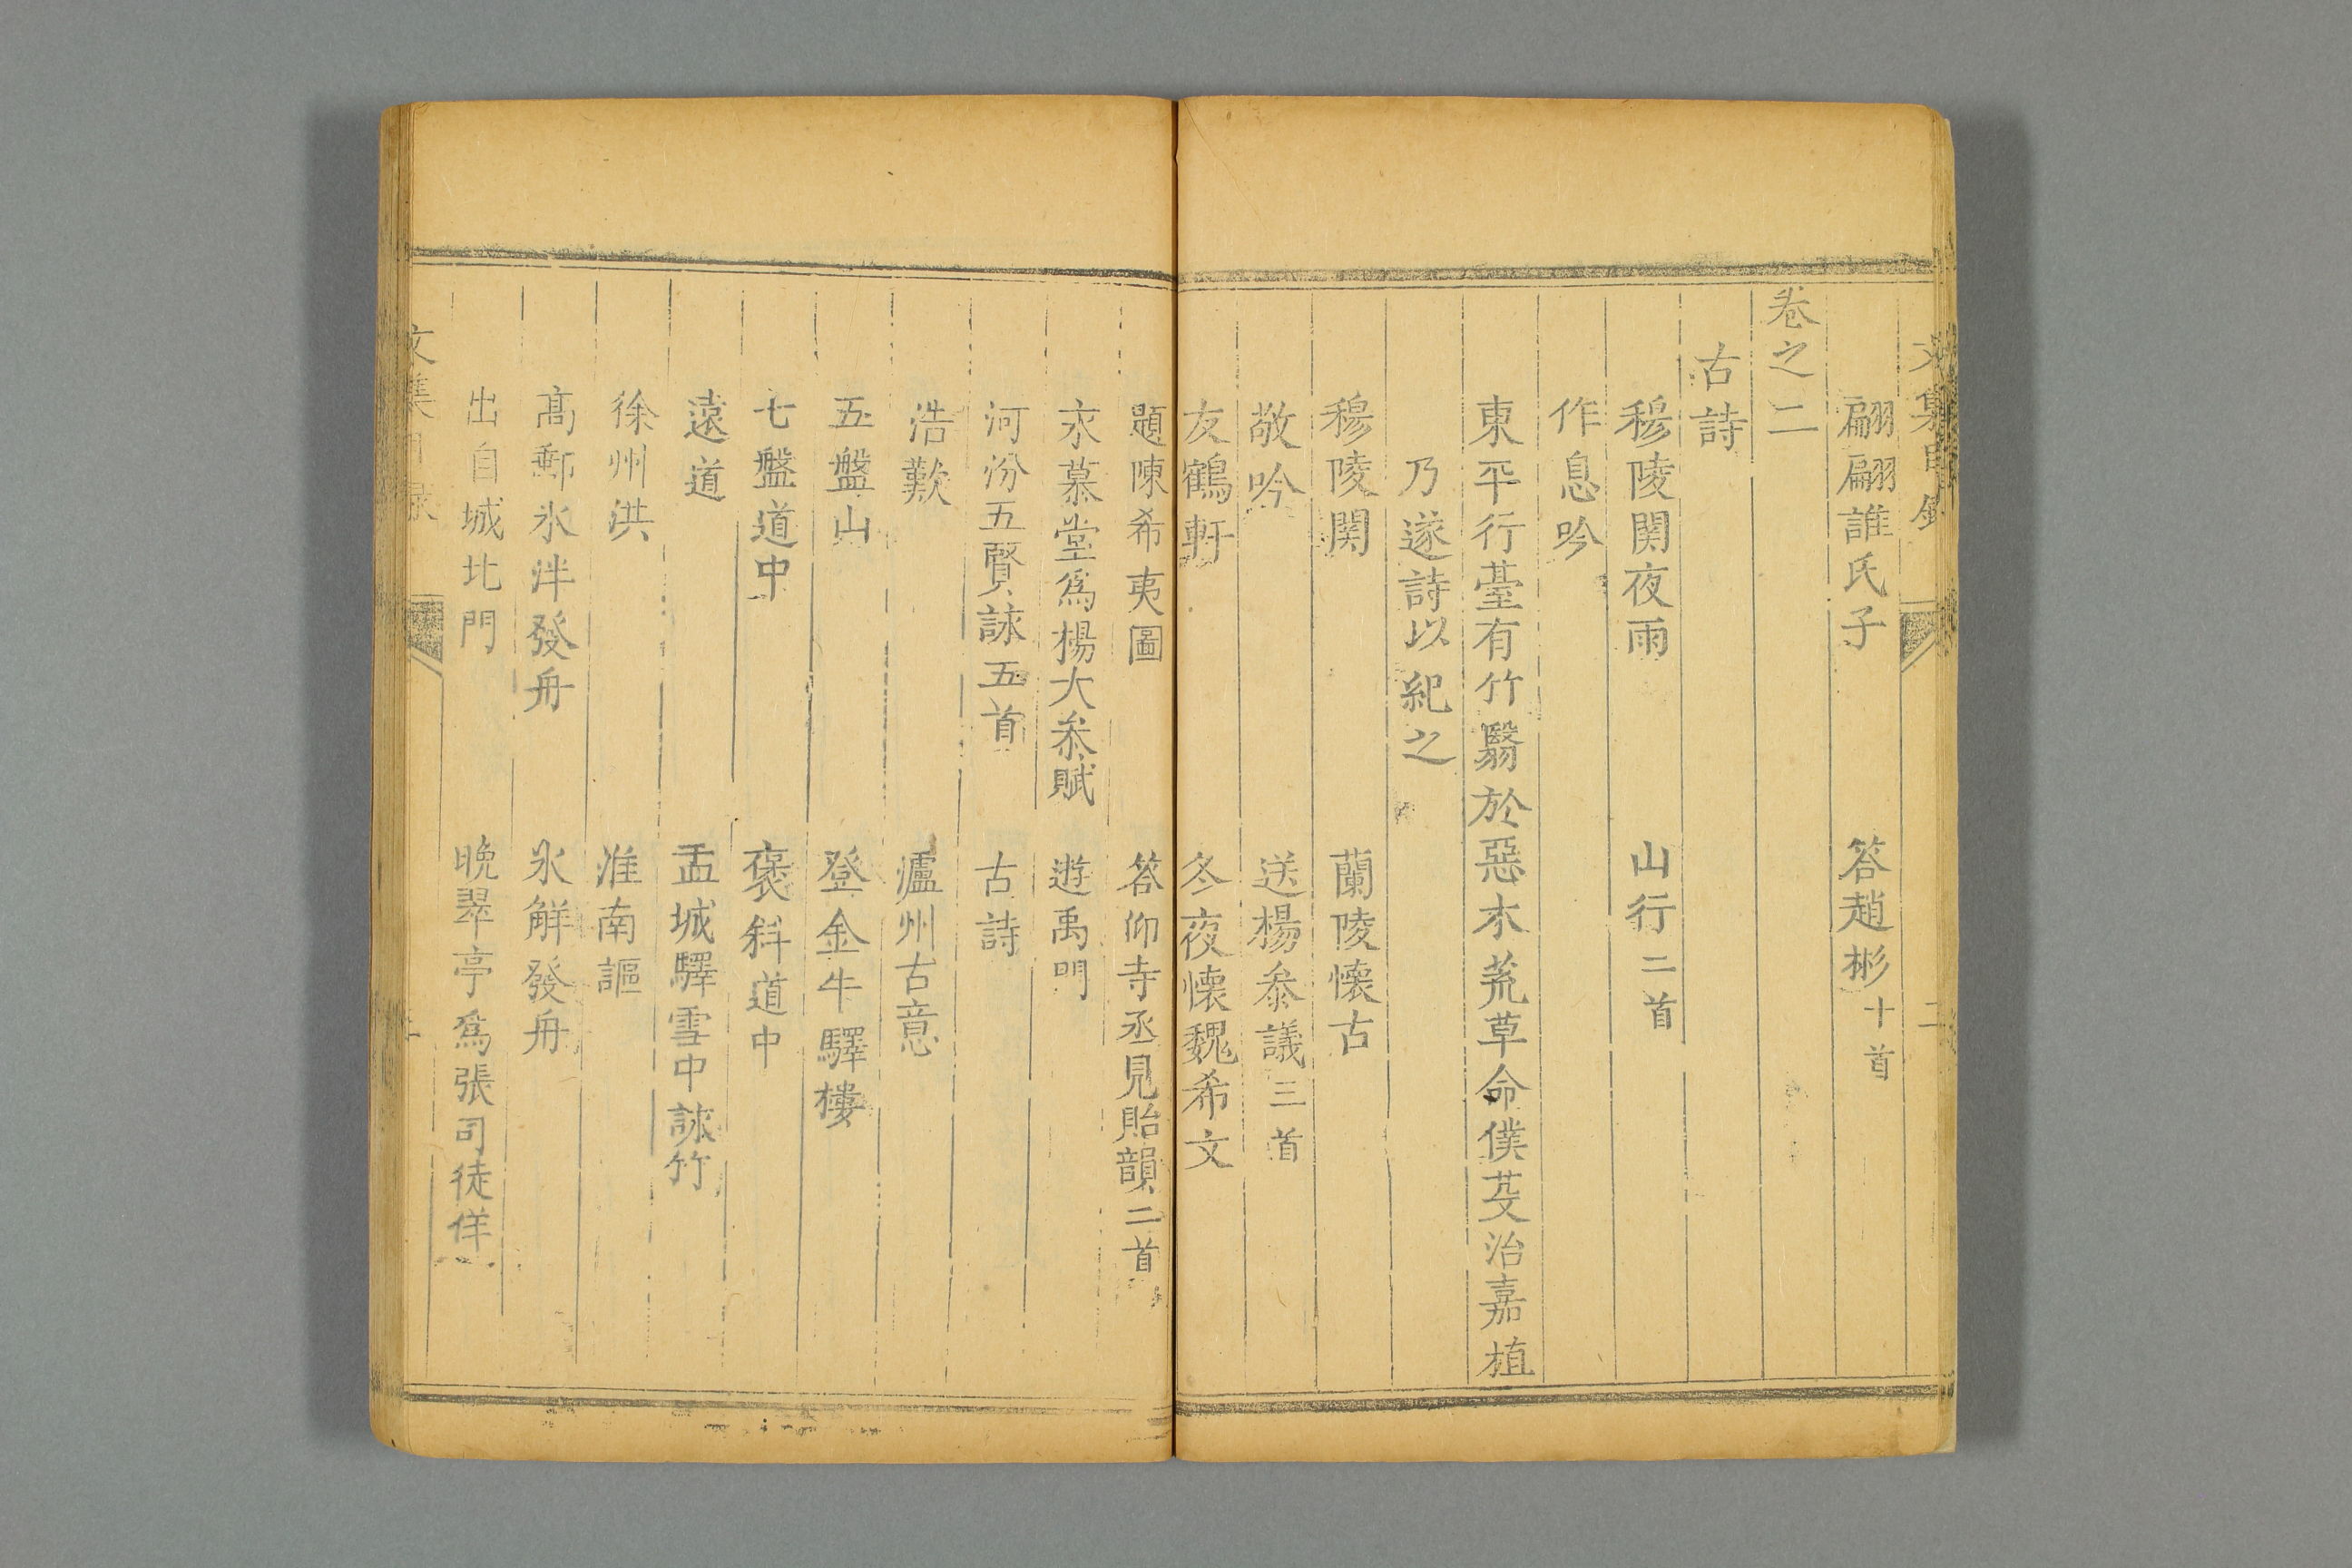 翩翩誰氏子　答趙彬十首
卷之二
古詩
穆陵関夜雨　山行二首
作息吟
東平行臺有竹翳於惡木荒草命僕芟治嘉植
乃遂詩以紀之
穆陵関　蘭陵懷古
敬吟　送楊叅議三首
友鶴軒　冬夜懷魏希文
題陳希夷圖　答仰寺丞見貽韻二首
永慕堂爲楊大叅賦　遊禹門
河汾五賢詠五首　古詩
浩歎　瀘州古意
五盤山　登金牛驛樓
七盤道中　褒斜道中
遠道　孟城驛雪中詠竹
徐州洪　淮南謳
髙郵氷泮發舟　氷解發舟
出自城北門　晚翠亭爲張司徒佯